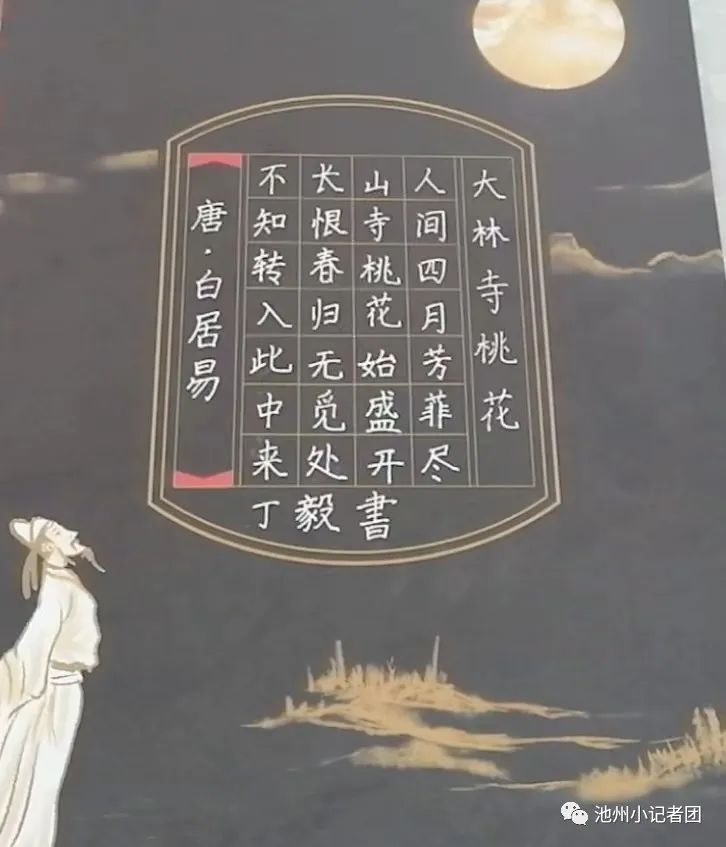 大林寺桃花
人间四月芳菲尽
山寺桃花始盛开
长恨春归无觅处
不知转入此中来
唐·白居易
丁毅書
池州小记者团